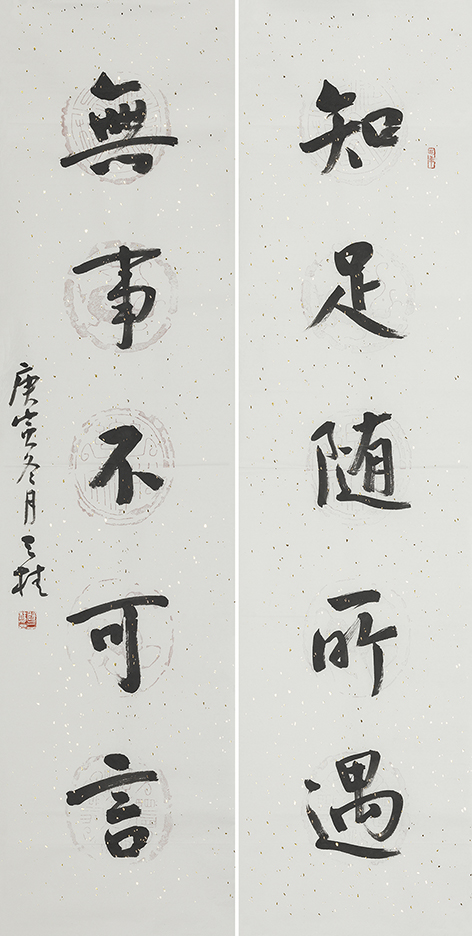 知足随所遇
無事不可言
庚寅冬月之桂